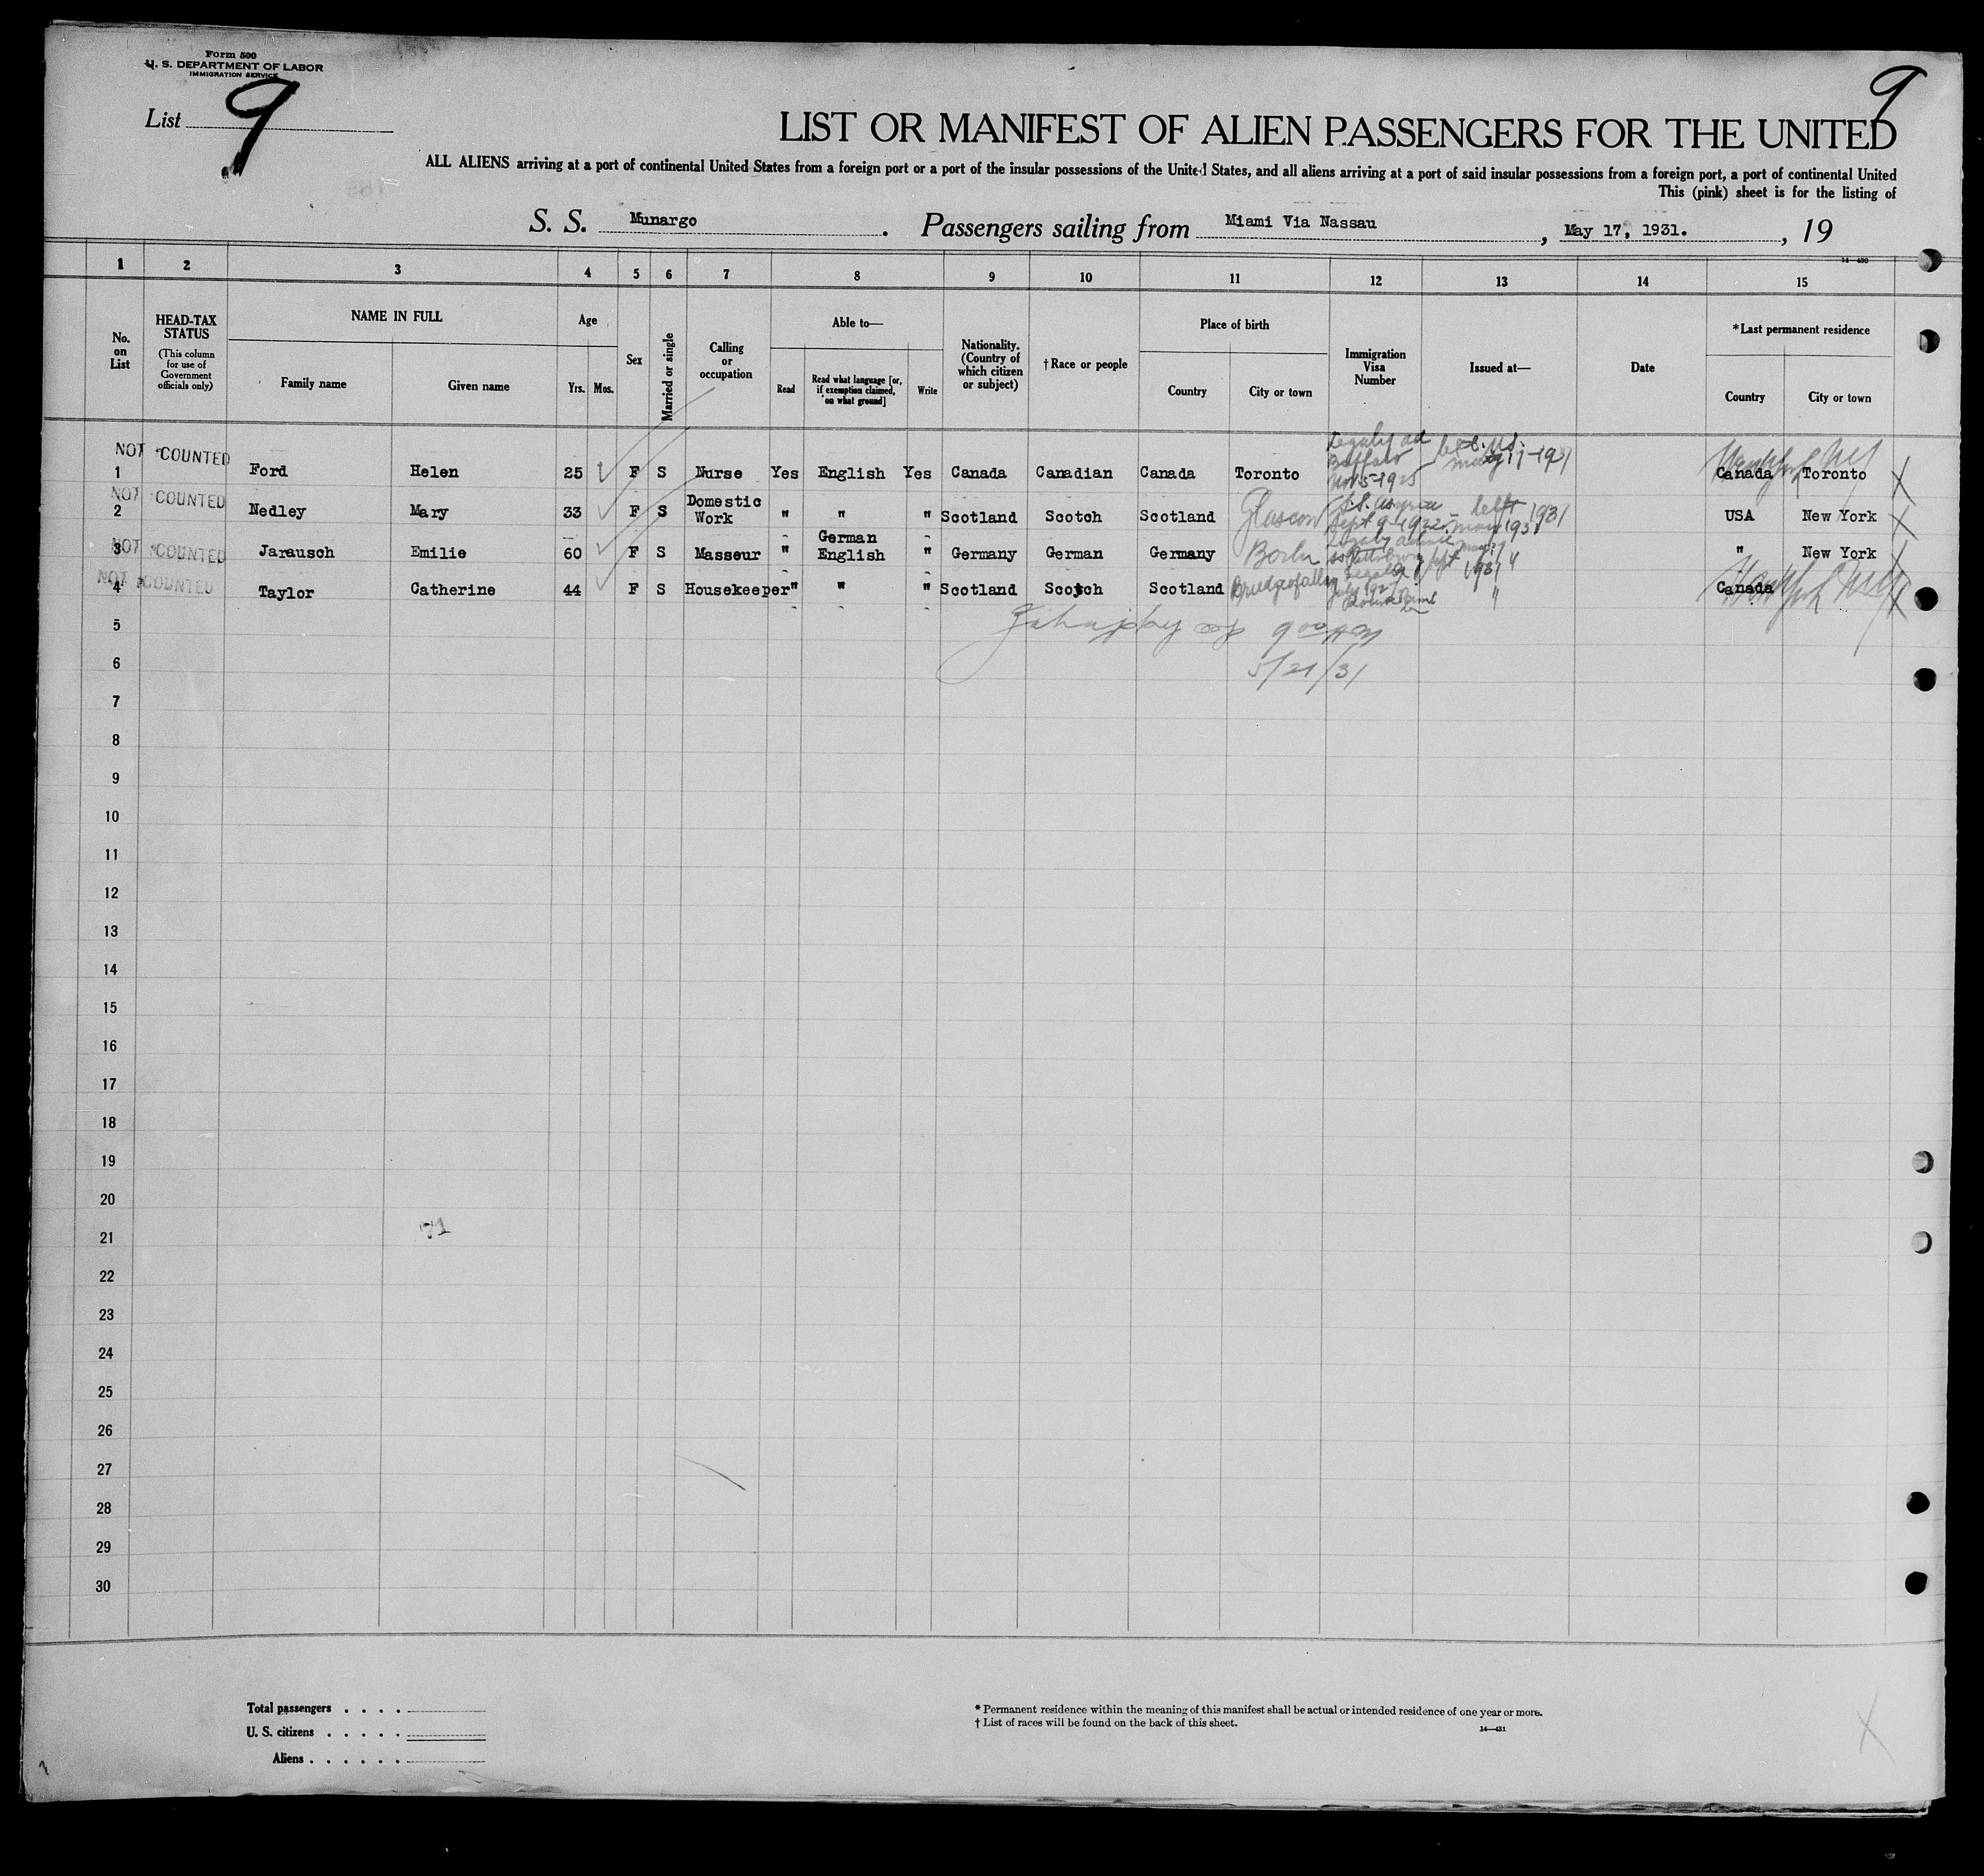 Form 500
U. S. DEPARTMENT OF LABOR
IMMIGRATION SERVICE
List 9
9
LIST OR MANIFEST OF ALIEN PASSENGERS FOR THE UNITED
ALL ALIENS arriving at a port of continental United States from a foreign port or a port of the insular possessions of the United States, and all aliens arriving at a port of said insular possessions from a foreign port, a port of continental United
This (pink) sheet is for the listing of
S. S. Munargo . Passengers sailing from Miami Via Nassau , May 17, 1931. , 19
14—430
1 2 3 4 5 6 7 8 9 10 11 12 13 14 15
No. on List
HEAD-TAX STATUS
(This column for use of Government officials only)
NAME IN FULL
Family name Given name
Age
Yrs. Mos.
Sex
Married or single
Calling or occupation
Able to—
Read
Read what language [or, if exemption claimed, on what ground]
Write
Nationality. (Country of which citizen or subject)
†Race or people
Place of birth
Country City or town
Immigration Visa Number
Issued at—
Date
*Last permanent residence
Country City or town
NOT COUNTED
1 Ford Helen 25 F S Nurse Yes English Yes Canada Canadian Canada Toronto Buffalo Canada Toronto
NOT COUNTED
2 Nedley Mary 33 F S Domestic Work " " " Scotland Scotch Scotland Glascow Sept 9-1922 left May 1931 USA New York
NOT COUNTED
3 Jarausch Emilie 60 F S Masseur " German English " Germany German Germany Berlin " New York
NOT COUNTED
4 Taylor Catherine 44 F S Housekeeper " " " Scotland Scotch Scotland Canada
5
9 00 AM
6
5/21/31
7
8
9
10
11
12
13
14
15
16
17
18
19
20
21
22
23
24
25
26
27
28
29
30
Total passengers . . . .
U. S. citizens . . . . .
Aliens . . . . . .
* Permanent residence within the meaning of this manifest shall be actual or intended residence of one year or more.
† List of races will be found on the back of this sheet.
14—431